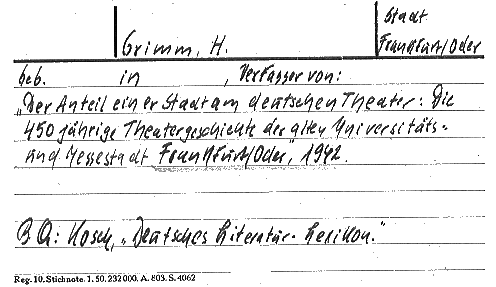 Stadt
Grimm, H. Frankfurt/Oder
geb. in , Verfasser von:
"Der Anteil einer Stadt am deutschen Theater: Die
450 jährige Theatergeschichte der alten Universitäts-
und Messestadt Frankfurt/Oder", 1942.
B Q: Kosch, "Deutsches Literatur-Lexikon."
Reg. 10. Stichnote. 1. 50. 232000. A. 803. S. 4062